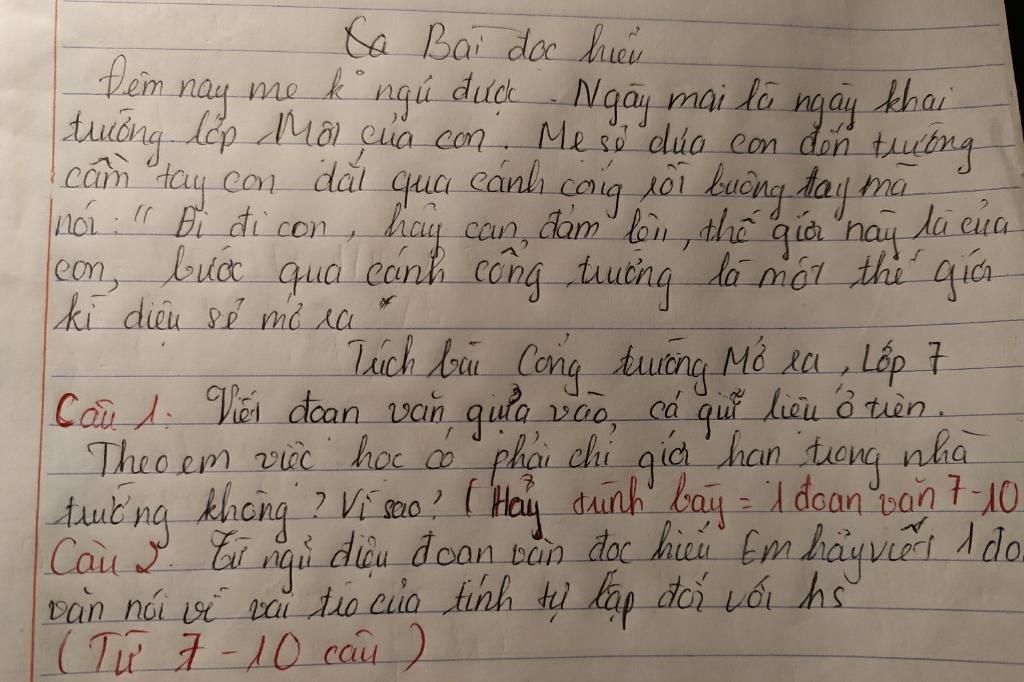 Ca Bài đọc hiểu
Đêm nay mẹ k° ngủ được. Ngày mai là ngày khai
trường lớp Một của con. Mẹ sẽ đưa con đến trường
cầm tay con dắt qua cánh cổng rồi buông tay mà
nói: " Đi đi con, hãy can đảm lên, thế giới này là của
con, bước qua cánh cổng trường là một thế giới
kì diệu sẽ mở ra "
Trích bài Cổng trường Mở ra, Lớp 7
Câu 1. Viết đoạn văn, giựa vào, cá giữ liệu ở trên.
Theo em việc học có phải chỉ giới hạn trong nhà
trường không? Vì sao? (Hãy trình bày = 1 đoạn văn 7-10
Câu 2. Từ ngữ điệu đoạn văn đọc hiểu Em hãy viết 1 đo
văn nói về vai trò của tính tự lập đối với hs
(Từ 7-10 câu)